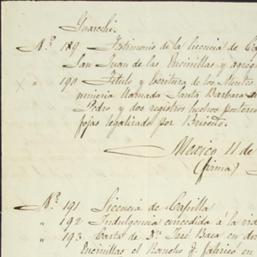 Guarochi.
No. 189 Testimonio de la licencia de
San Juan de las Encinillas y
190 Titulo y escritura de los
mineria llamada Santa Barbara
Pedro y dos registros hechos
fojas legalizado por Briseño.
Mexico 11 de
(firma)
No. 191 Licencia de Capilla
" 192 Indulgencia concedida á la
" 193 Carta de Dn. José Baca en
Encinillas el Rancho y fabricó en